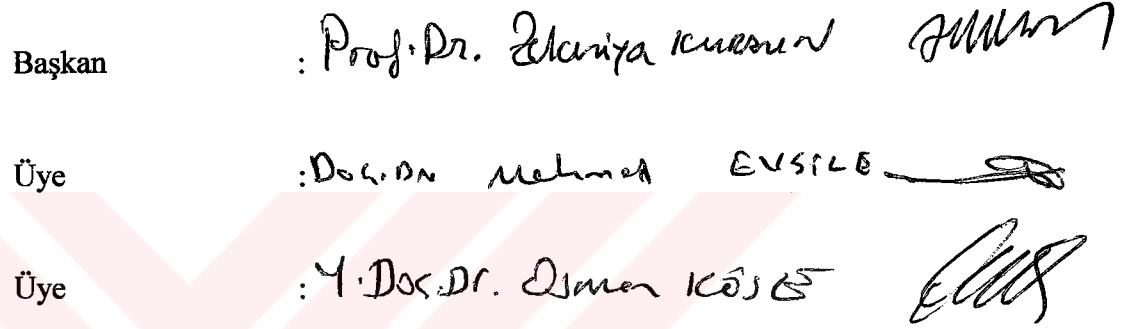 Başkan : Prof. Dr. Zekeriya KURŞUN
Üye : Doç. Dr. Mehmet EVSİLE
Üye : Y. Doç. Dr. Osman KÖSE